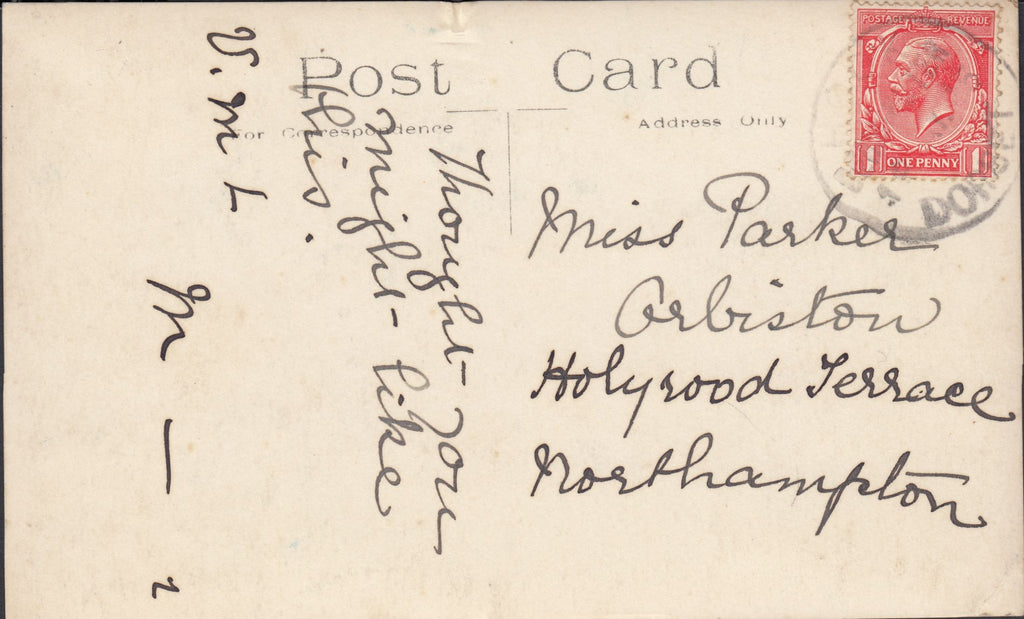 Post Card
For Correspondence
Address Only
POSTAGE REVENUE
1 ONE PENNY 1
DORSET
Miss Parker
Orbiston
Holyrood Terrace
Northampton
Thought you
might like
this.
V. M L
M —